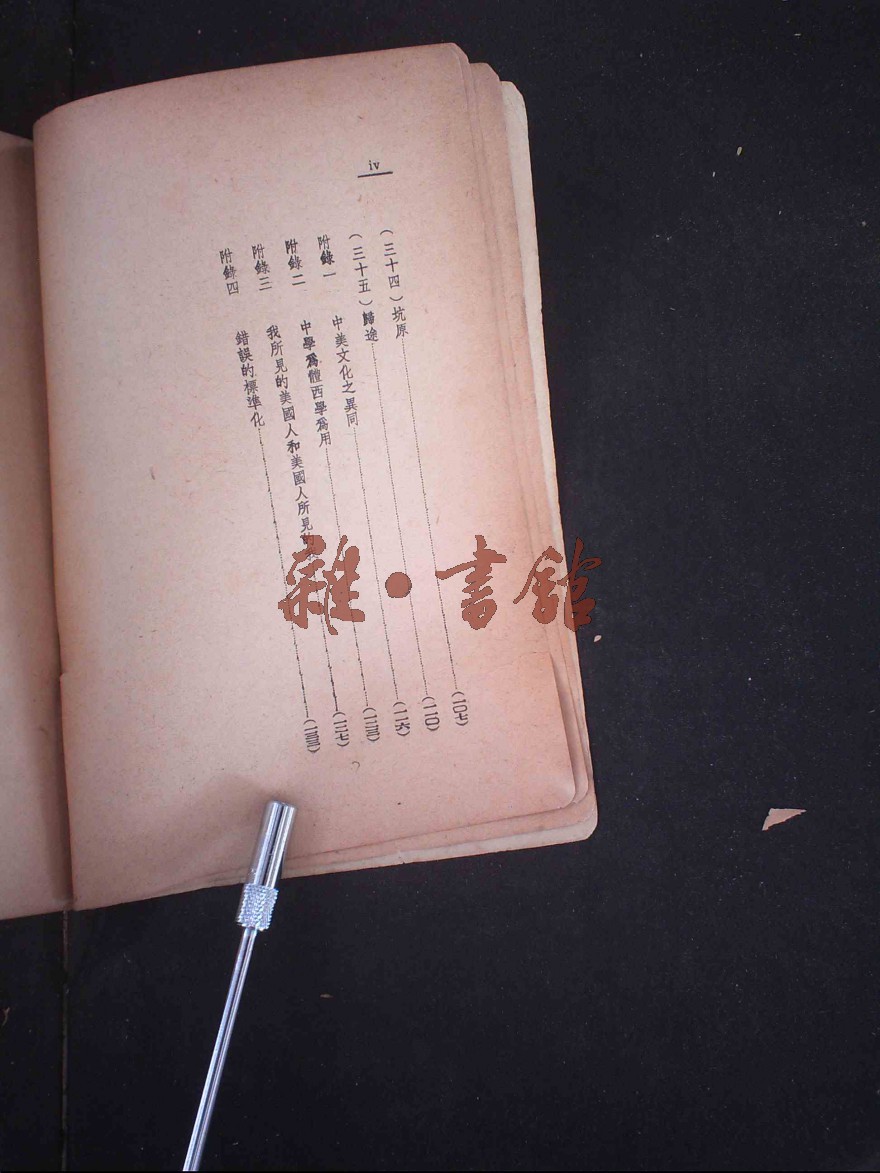 iv
（三十四）坑原……（一〇七）
（三十五）歸途……（一一〇）
附錄一 中美文化之異同……（一一六）
附錄二 中學爲體西學爲用……（一二三）
附錄三 我所見的美國人和美國人所見的……（一二七）
附錄四 錯誤的標準化……（一三三）
雜·書館